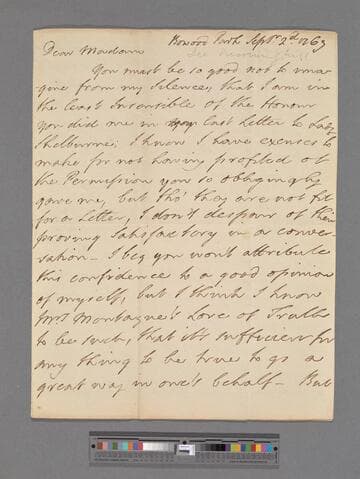 Bowood Park Septr. 2d. 1763
Dear Madam
You must be so good not to ima=
gine from my Silence, that I am in
the least Insensible of the Honour
you did me in your last Letter to Lady
Shelburne; I know I have excuses to
make for not having profited of
the Permission you so obligingly
gave me, but tho' they are not fit
for a Letter, I don't despair of their
proving Satisfactory in a conver=
sation - I beg you won't attribute
this confidence to a good opinion
of myself, but I think I know
Mrs Montague's Love of Truth
to be such, that it's sufficient for
any thing to be true to go a
great way in one's behalf - But